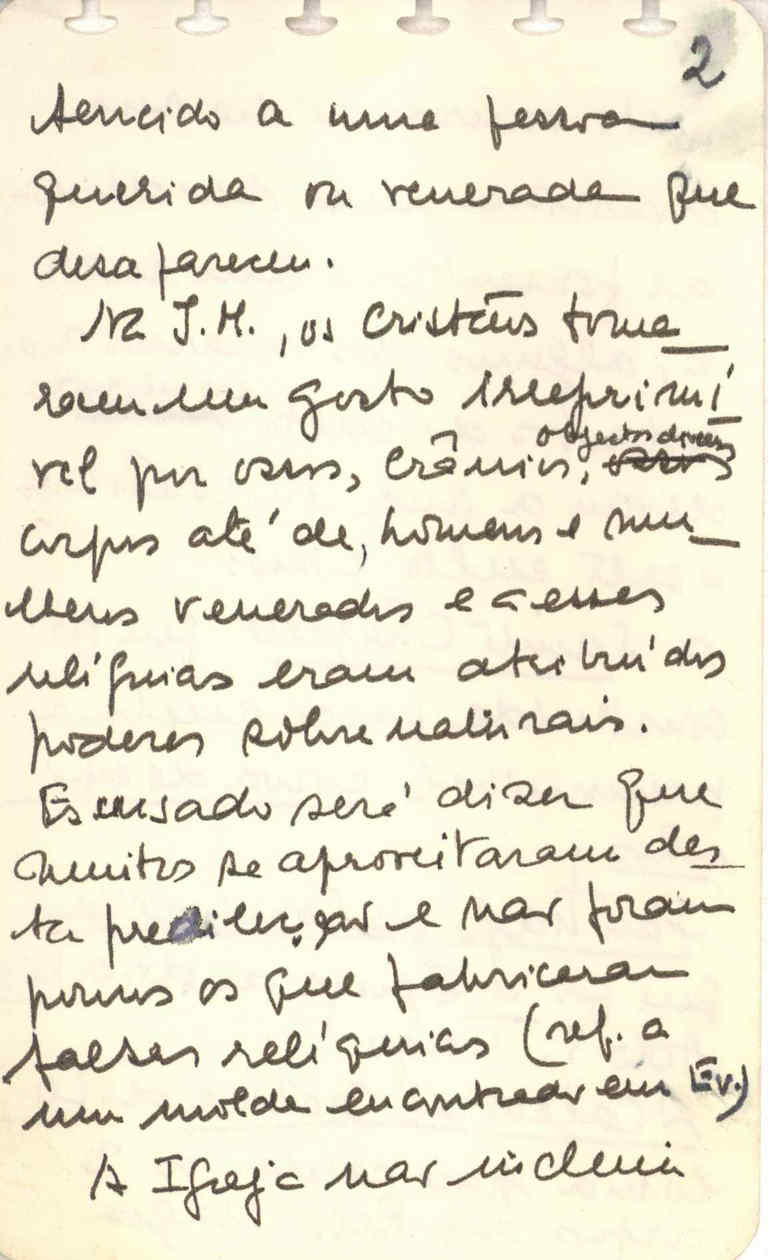 2
tencido a uma pessoa
querida ou venerada que
desapareceu.
Na I.M., os Cristãos toma_
ram um gosto irreprimí_
vel por ossos, crânios, objectos diversos
corpos até de, homens e mu_
lheres venerados e a esses
relíquias eram atribuídos
poderes sobrenaturais.
Escusado será dizer que
muitos se aproveitaram des_
ta predilecção e não foram
poucos os que fabricaram
falsas relíquias (ref. a
um molde encontrado em Ev.)
A Igreja não incluiu